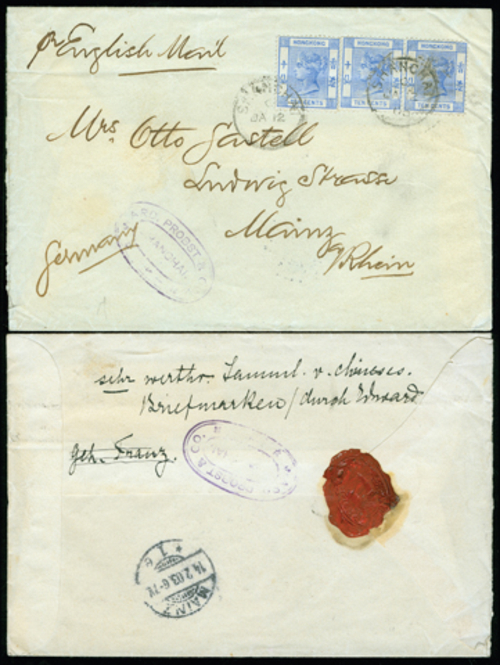 pr English Mail
HONGKONG HONGKONG HONGKONG
TEN CENTS TEN CENTS TEN CENTS
SHANGHAI
JA 12
SHANGHAI
Mrs. Otto Gastell
Ludwig Strasse
Mainz
a/Rhein
Germany
PROBST & CO.
SHANGHAI
sehr werthv. Samml. v. chines.
Briefmarken / durch Edward
geh. Franz.
PROBST & CO.
MAINZ
14.2.03.6-7V.
* 1 e